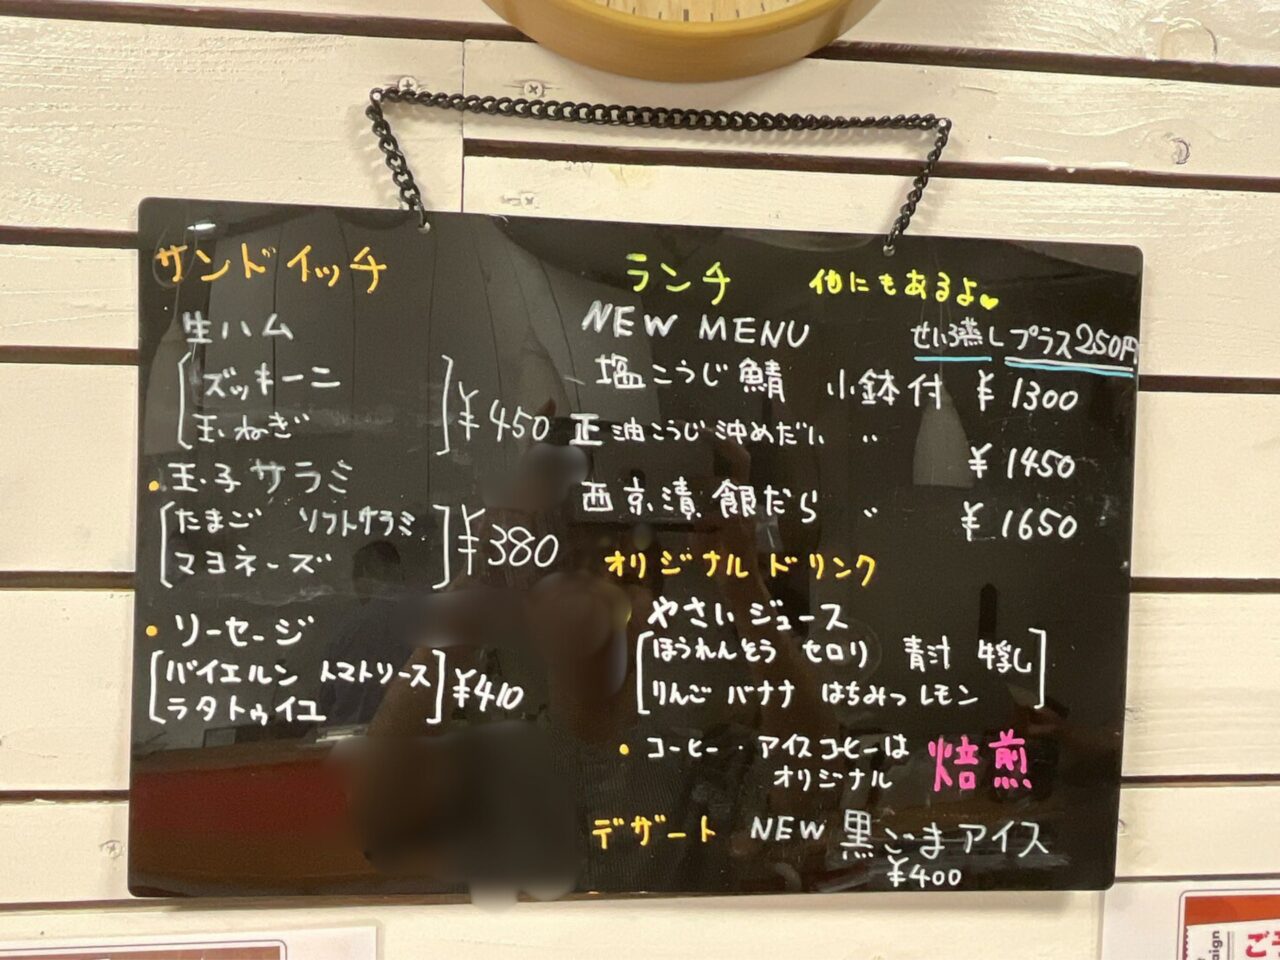 サンドイッチ
生ハム
ズッキーニ
玉ねぎ
¥450
・玉子サラミ
たまご ソフトサラミ
マヨネーズ
¥380
・ソーセージ
バイエルン トマトソース
ラタトゥイユ
¥410
ランチ 他にもあるよ♥
NEW MENU せいろ蒸し プラス250円
塩こうじ鯖 小鉢付 ¥1300
油こうじ沖めだい 〃
¥1450
西京漬 銀だら 〃 ¥1650
オリジナルドリンク
やさいジュース
ほうれんそう セロリ 青汁 牛乳
りんご バナナ はちみつ レモン
・コーヒー・アイスコーヒーは 焙煎
オリジナル
デザート NEW 黒ごまアイス
¥400